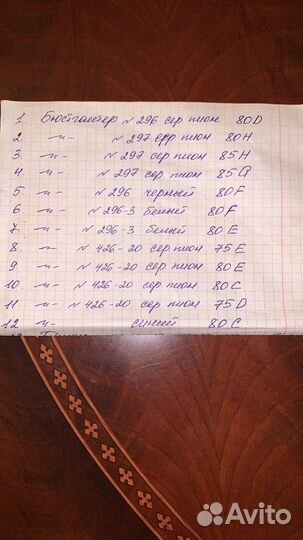 1. Бюстгалтер № 296 сер пион 80D
2. -"- № 297 сер пион 80H
3. -"- № 297 сер пион 85H
4. -"- № 297 сер пион 85G
5. -"- № 296 черный 80F
6 -"- № 296-3 белый 80F
7 -"- № 296-3 белый 80E
8 -"- № 426-20 сер пион 75E
9 -"- № 426-20 сер пион 80E
10. -"- № 426-20 сер пион 80C
11. -"- № 426-20 сер пион 75D
12 -"- синий 80C
Avito